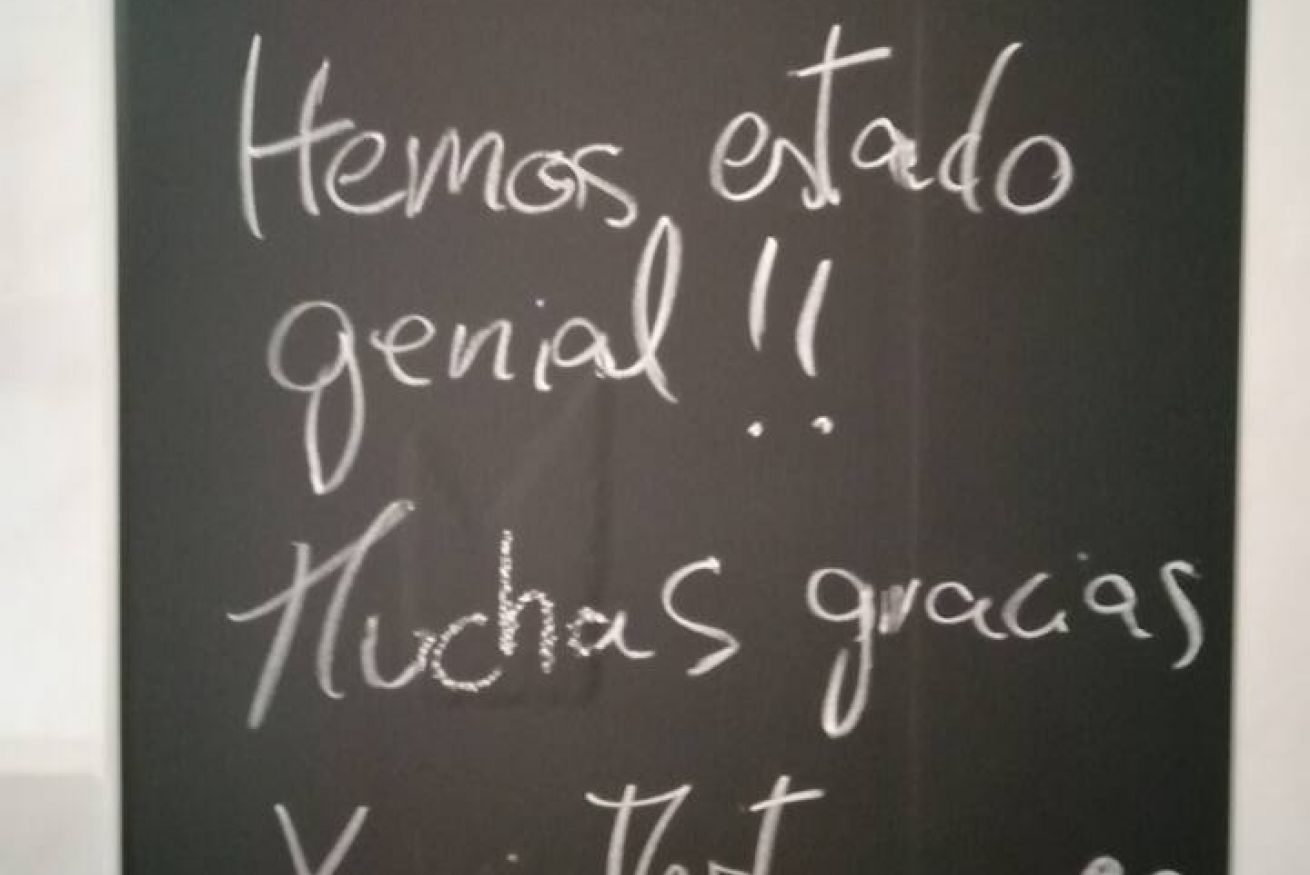 Hemos estado
genial!!
Muchas gracias